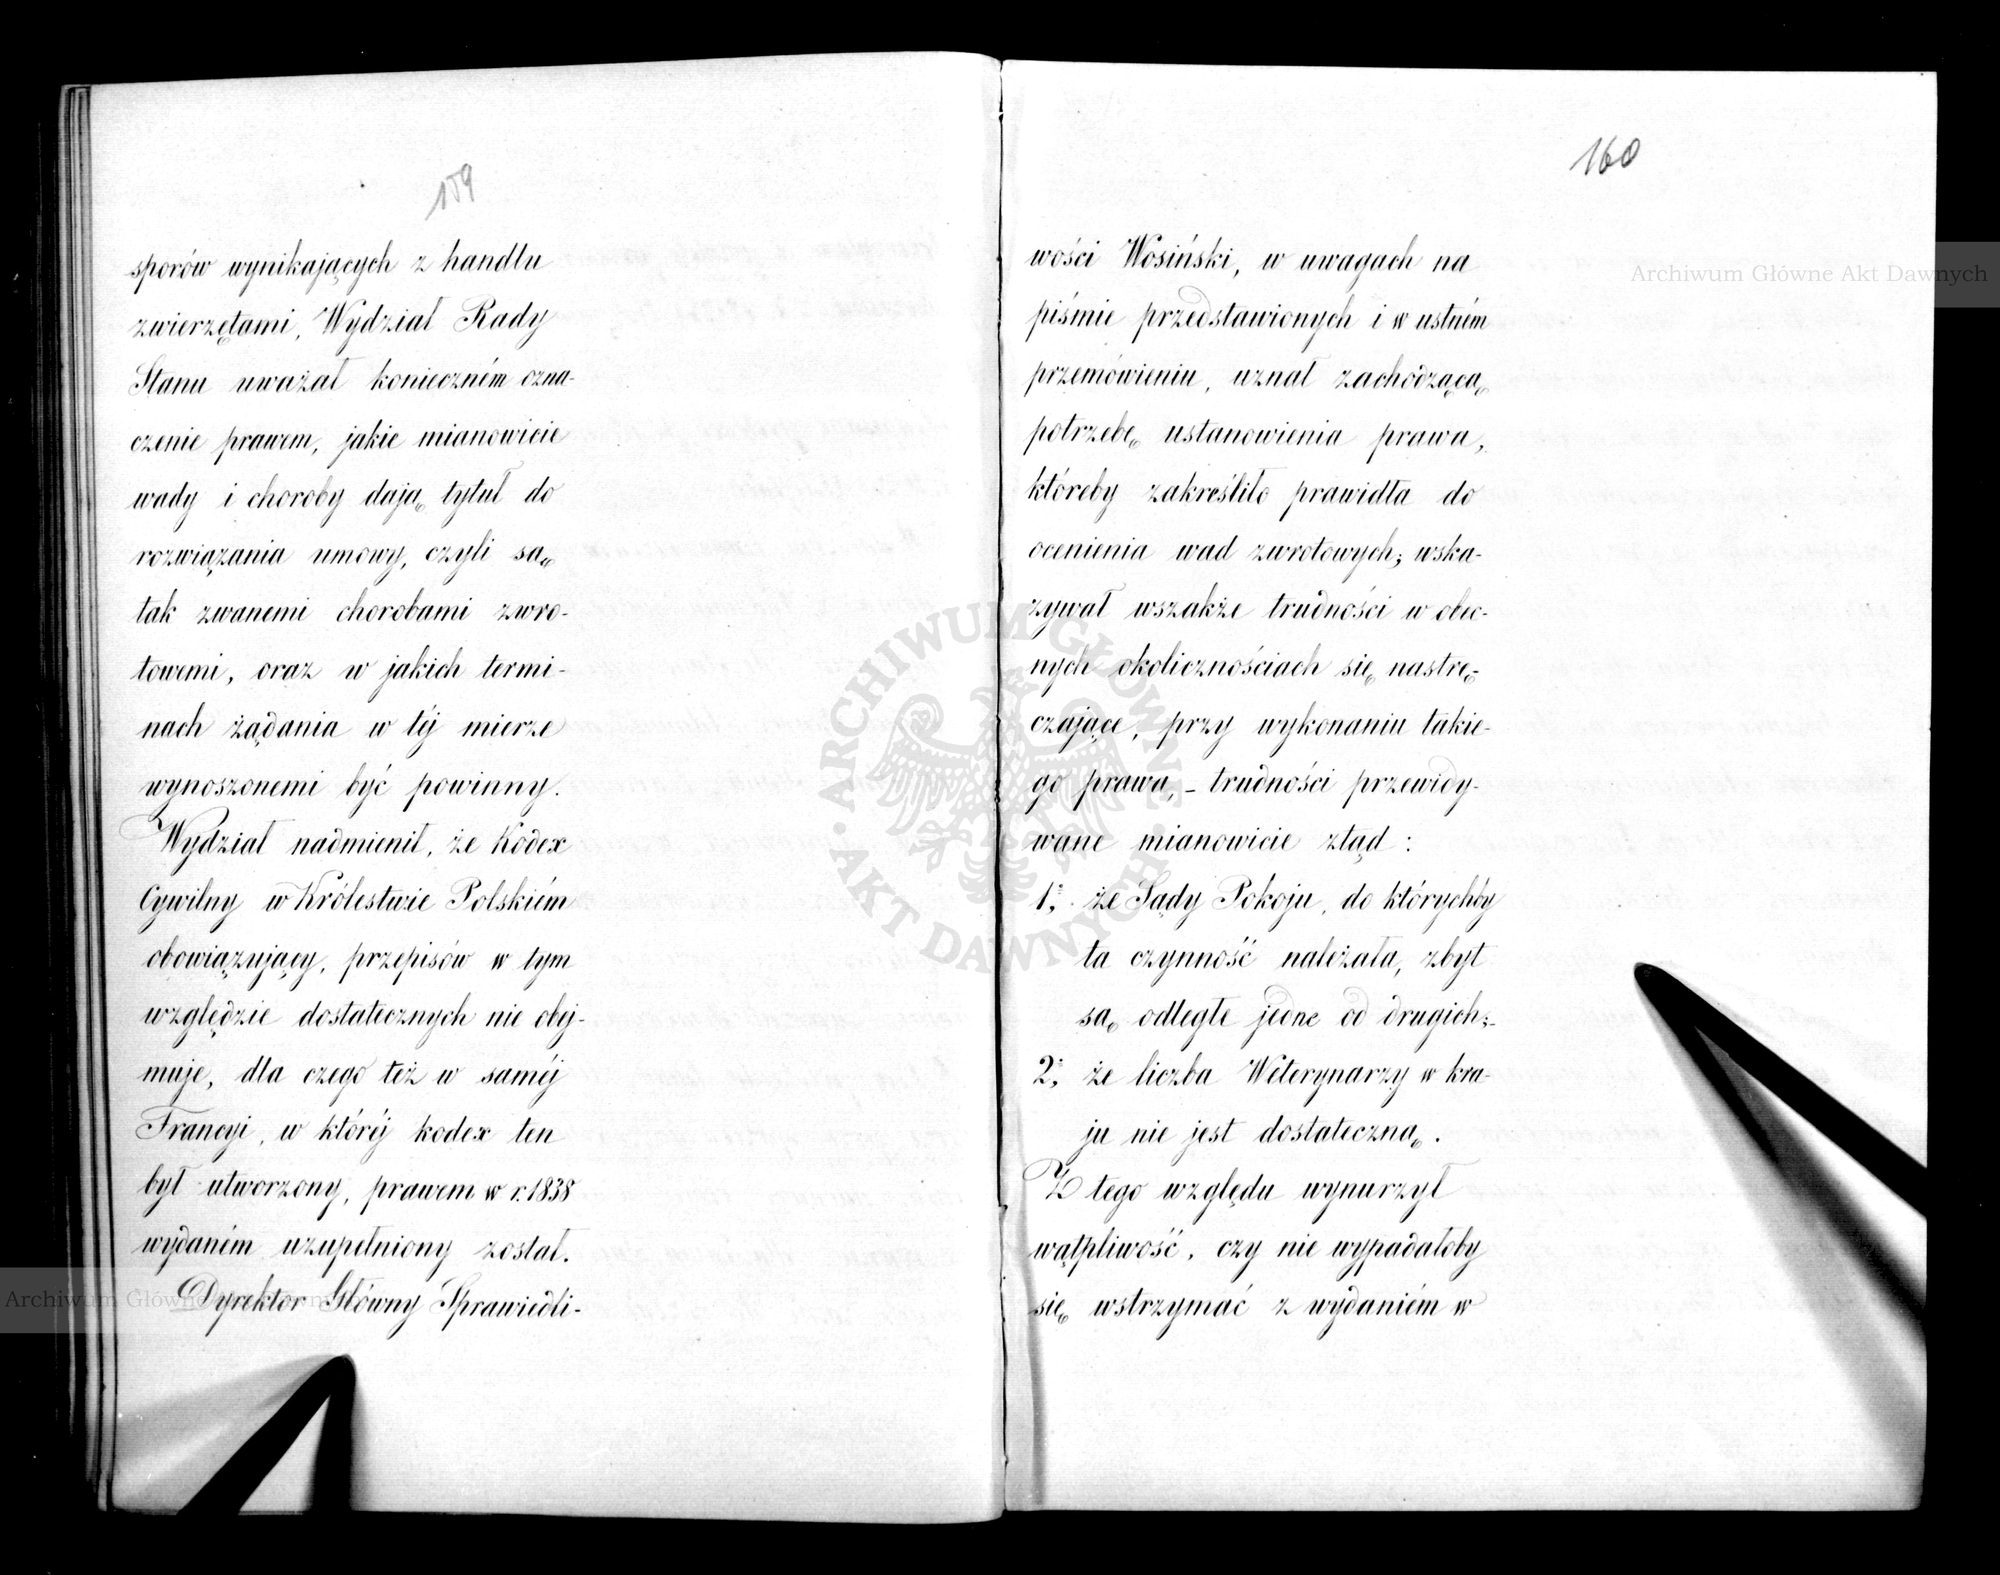 159
sporów wynikających z handlu
zwierzętami, Wydział Rady
Stanu uważał konieczném ozna-
czenie prawem, jakie mianowicie
wady i choroby dają tytuł do
rozwiązania umowy, czyli są
tak zwanemi chorobami zwro-
towemi, oraz w jakich termi-
nach żądania w téj mierze
wynoszonemi być powinny.
Wydział nadmienił, że Kodex
Cywilny w Królestwie Polskiém
obowiązujący, przepisów w tym
względzie dostatecznych nie obej-
muje, dla czego też w saméj
Francyi, w któréj kodex ten
był utworzony, prawem w r. 1838
wydaném uzupełniony został.
Dyrektor Główny Sprawiedli-
160
wości Wosiński, w uwagach na
piśmie przedstawionych i w ustném
przemówieniu, uznał zachodzącą
potrzebę ustanowienia prawa,
któreby zakreśliło prawidła do
ocenienia wad zwrotowych; wska-
zywał wszakże trudności w obec-
nych okolicznościach się nastrę-
czające, przy wykonaniu takie-
go prawa, - trudności przewidy-
wane mianowicie ztąd :
1º, że Sądy Pokoju, do którychby
ta czynność należała, zbyt
są odległe jedne od drugich;-
2º, że liczba Weterynarzy w kra-
ju nie jest dostateczną.
Z tego względu wynurzył
wątpliwość, czy nie wypadałoby
się wstrzymać z wydaniem w
Archiwum Główne Akt Dawnych
Archiwum Główne Akt Dawnych
ARCHIWUM GŁÓWNE AKT DAWNYCH